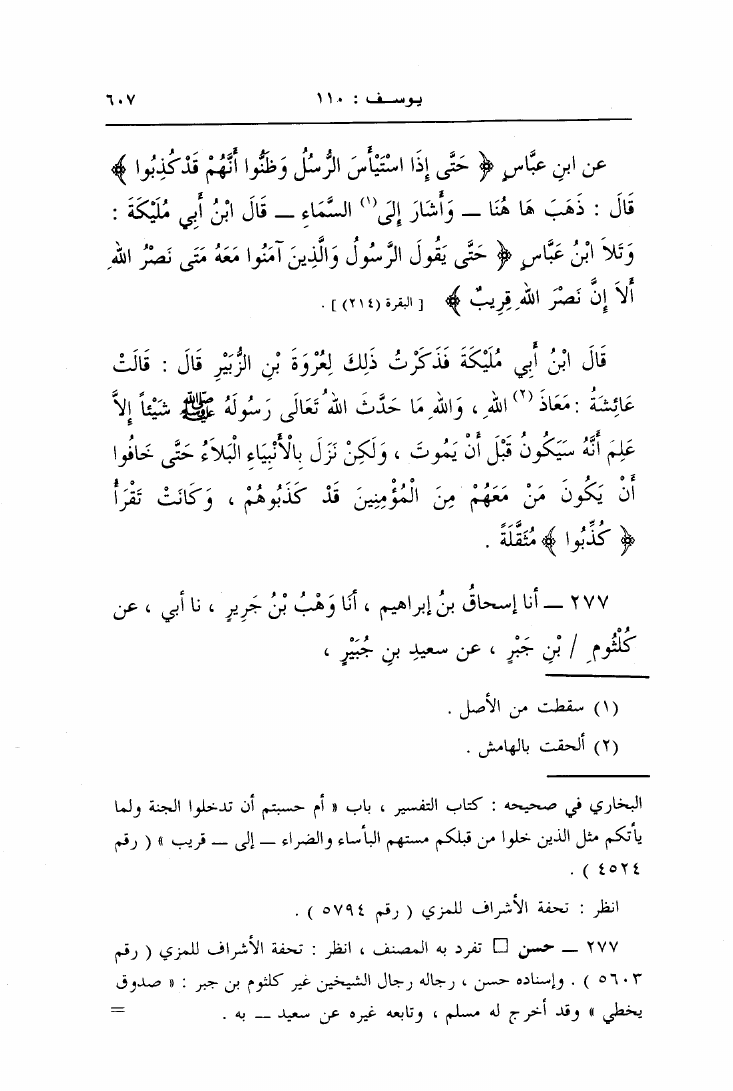 يوسف : ١١٠ ٦٠٧
عن ابنِ عبَّاسٍ ﴿ حَتَّى إِذَا اسْتَيْأَسَ الرُّسُلُ وَظَنُّوا أَنَّهُمْ قَدْ كُذِبُوا ﴾
قَالَ : ذَهَبَ هَا هُنَا ــ وَأَشَارَ إِلَى(١) السَّمَاءِ ــ قَالَ ابْنُ أَبِي مُلَيْكَةَ :
وَتَلاَ ابْنُ عَبَّاسٍ ﴿ حَتَّى يَقُولَ الرَّسُولُ وَالَّذِينَ آمَنُوا مَعَهُ مَتَى نَصْرُ اللهِ
أَلاَ إِنَّ نَصْرَ اللهِ قَرِيبٌ ﴾ [ البقرة (٢١٤) ] .
قَالَ ابْنُ أَبِي مُلَيْكَةَ فَذَكَرْتُ ذَلِكَ لِعُرْوَةَ بْنِ الزُّبَيْرِ قَالَ : قَالَتْ
عَائِشَةُ : مَعَاذَ(٢) اللهِ ، وَاللهِ مَا حَدَّثَ اللهُ تَعَالَى رَسُولَهُ ﷺ شَيْئاً إِلاَّ
عَلِمَ أَنَّهُ سَيَكُونُ قَبْلَ أَنْ يَمُوتَ ، وَلَكِنْ نَزَلَ بِالْأَنْبِيَاءِ الْبَلاَءُ حَتَّى خَافُوا
أَنْ يَكُونَ مَنْ مَعَهُمْ مِنَ الْمُؤْمِنِينَ قَدْ كَذَبُوهُمْ ، وَكَانَتْ تَقْرَأُ
﴿ كُذِّبُوا ﴾ مُثَقَّلَةً .
٢٧٧ ــ أنا إسحاقُ بنُ إبراهيم ، أَنَا وَهْبُ بْنُ جَرِيرٍ ، نا أبي ، عن
كُلْثُومِ / بْنِ جَبْرٍ ، عن سعيدِ بنِ جُبَيْرٍ ،
(١) سقطت من الأصل .
(٢) ألحقت بالهامش .
البخاري في صحيحه : كتاب التفسير ، باب « أم حسبتم أن تدخلوا الجنة ولما
يأتكم مثل الذين خلوا من قبلكم مستهم البأساء والضراء ــ إلى ــ قريب » ( رقم
٤٥٢٤ ) .
انظر : تحفة الأشراف للمزي ( رقم ٥٧٩٤ ) .
٢٧٧ ــ حسن □ تفرد به المصنف ، انظر : تحفة الأشراف للمزي ( رقم
٥٦٠٣ ) . وإسناده حسن ، رجاله رجال الشيخين غير كلثوم بن جبر : « صدوق
يخطي » وقد أخرج له مسلم ، وتابعه غيره عن سعيد ــ به . =